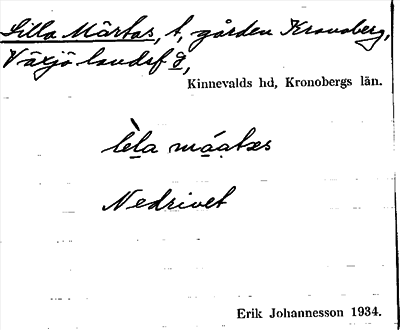 Lilla Märtas, t, gården Kronoberg,
Växjö landsf g,
Kinnevalds hd, Kronobergs län.
lèla máatæs
Nedrivet
Erik Johannesson 1934.